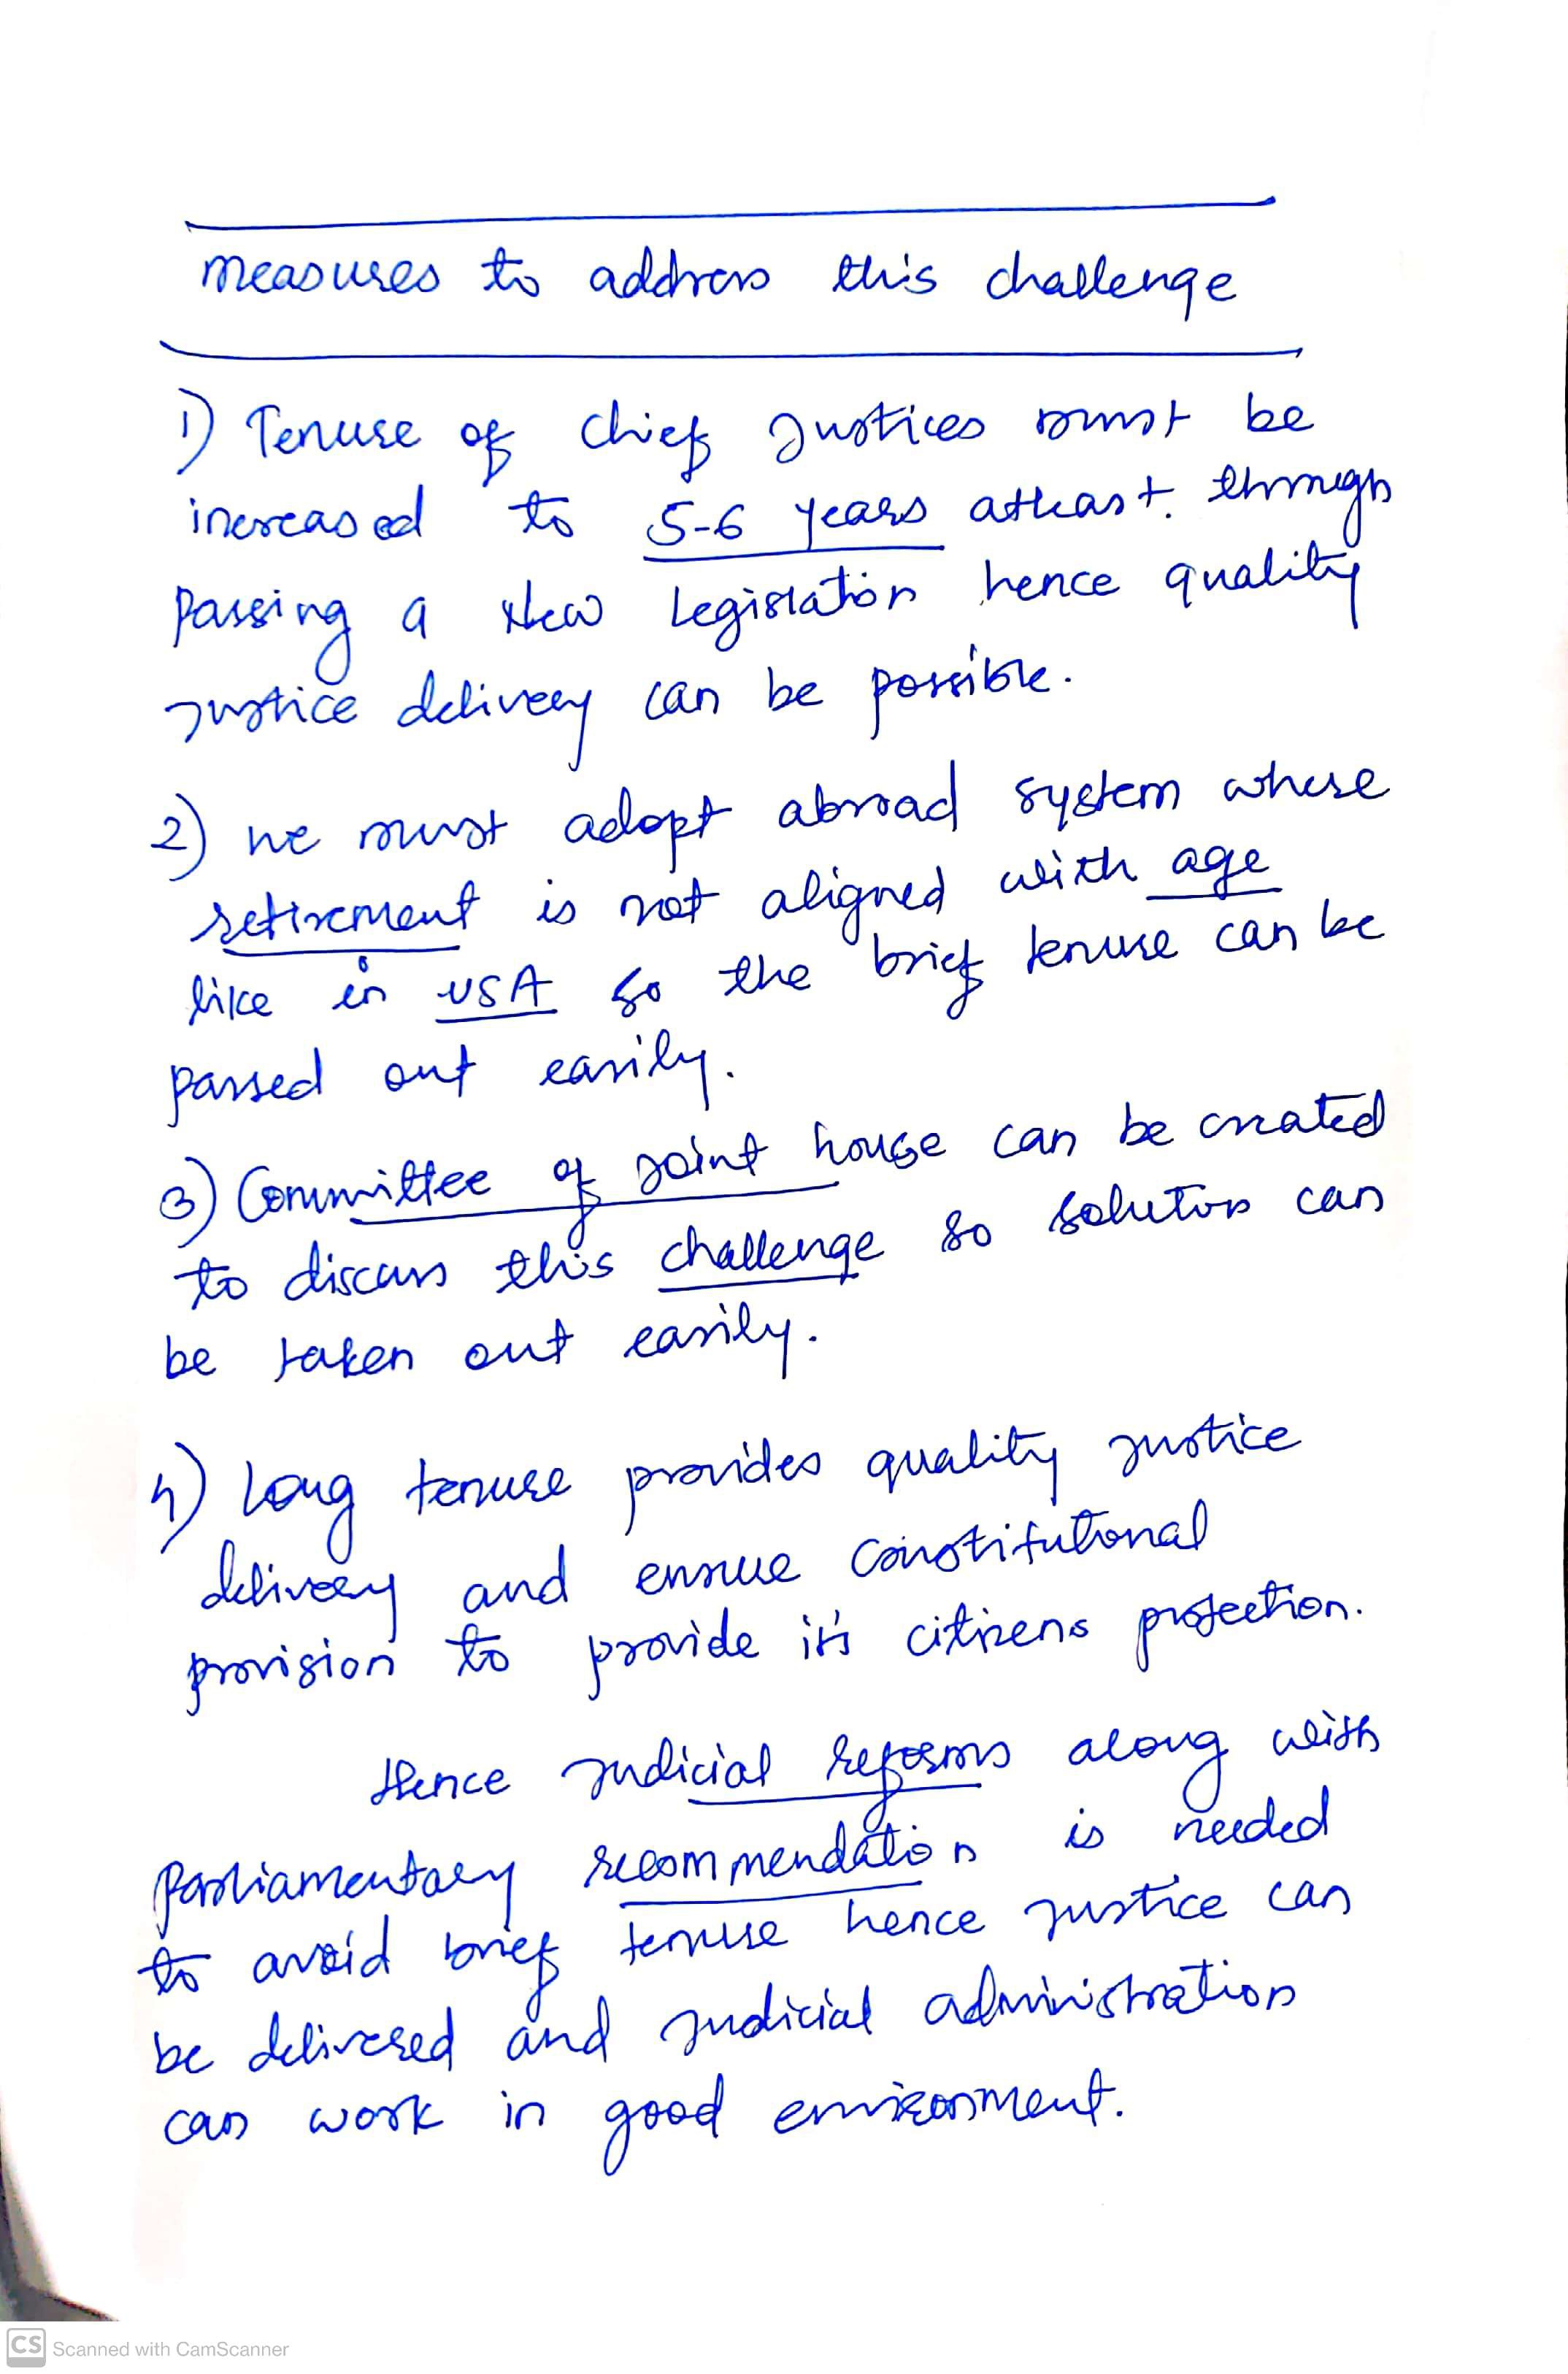 measures to address this challenge
1) Tenure of chief Justices must be
increased to 5-6 years atleast. through
passing a New Legislation hence quality
justice delivery can be possible.
2) we must adopt abroad system where
retirement is not aligned with age
like in USA so the brief tenure can be
passed out easily.
3) Committee of joint house can be created
to discuss this challenge so solution can
be taken out easily.
4) Long tenure provides quality justice
delivery and ensure constitutional
provision to provide it's citizens protection.
Hence judicial reforms along with
parliamentary recommendation is needed
to avoid brief tenure hence justice can
be delivered and judicial administration
can work in good environment.
CS Scanned with CamScanner